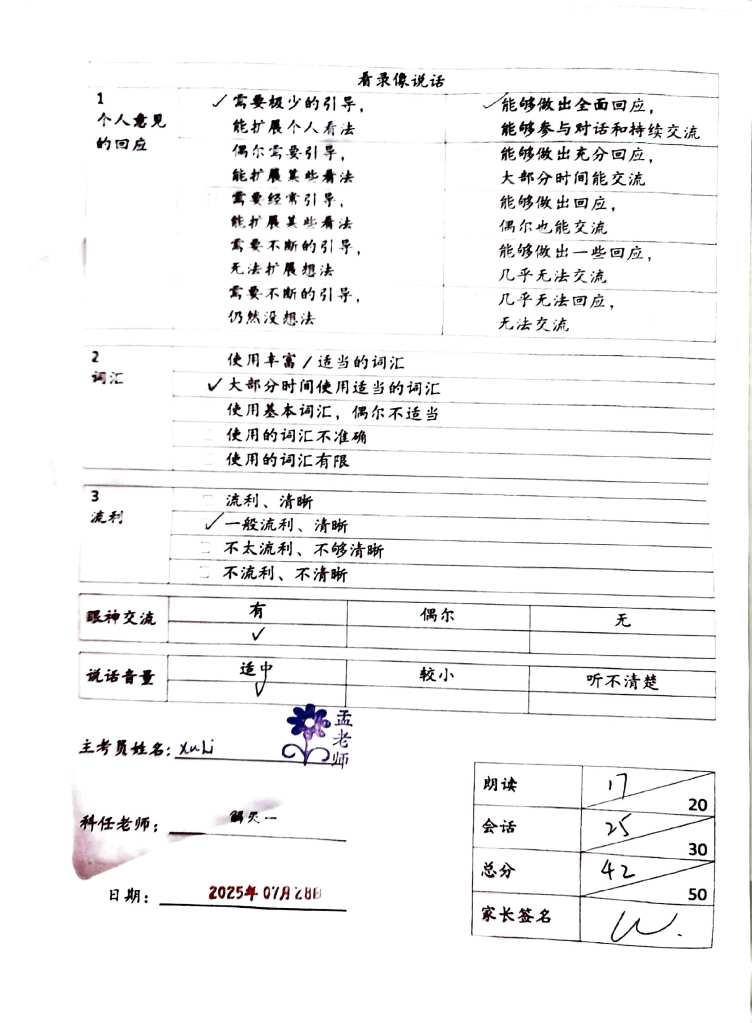 看录像说话
1
个人意见
的回应
✓ 需要极少的引导，
能扩展个人看法
✓ 能够做出全面回应，
能够参与对话和持续交流
偶尔需要引导，
能扩展某些看法
能够做出充分回应，
大部分时间能交流
需要经常引导，
能扩展某些看法
能够做出回应，
偶尔也能交流
需要不断的引导，
无法扩展想法
能够做出一些回应，
几乎无法交流
需要不断的引导，
仍然没想法
几乎无法回应，
无法交流
2
词汇
使用丰富/适当的词汇
✓ 大部分时间使用适当的词汇
使用基本词汇，偶尔不适当
使用的词汇不准确
使用的词汇有限
3
流利
流利、清晰
✓ 一般流利、清晰
不太流利、不够清晰
不流利、不清晰
眼神交流 有 偶尔 无
✓
说话音量 适中 较小 听不清楚
✓
主考员姓名：Xu Li
孟老师
科任老师：
日期：2025年07月28日
朗读 17 20
会话 25 30
总分 42 50
家长签名